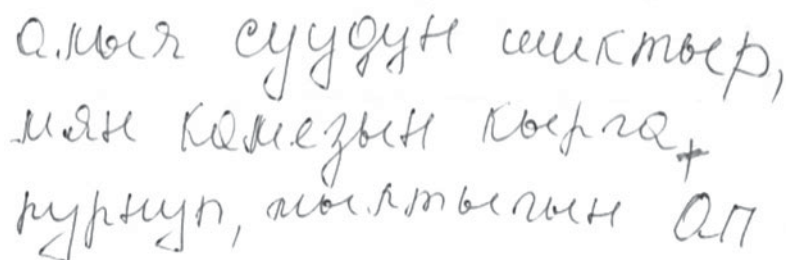 амыя суудун шиктыер,
мян камезын кырга+
рурнуп, мылтыгын ап